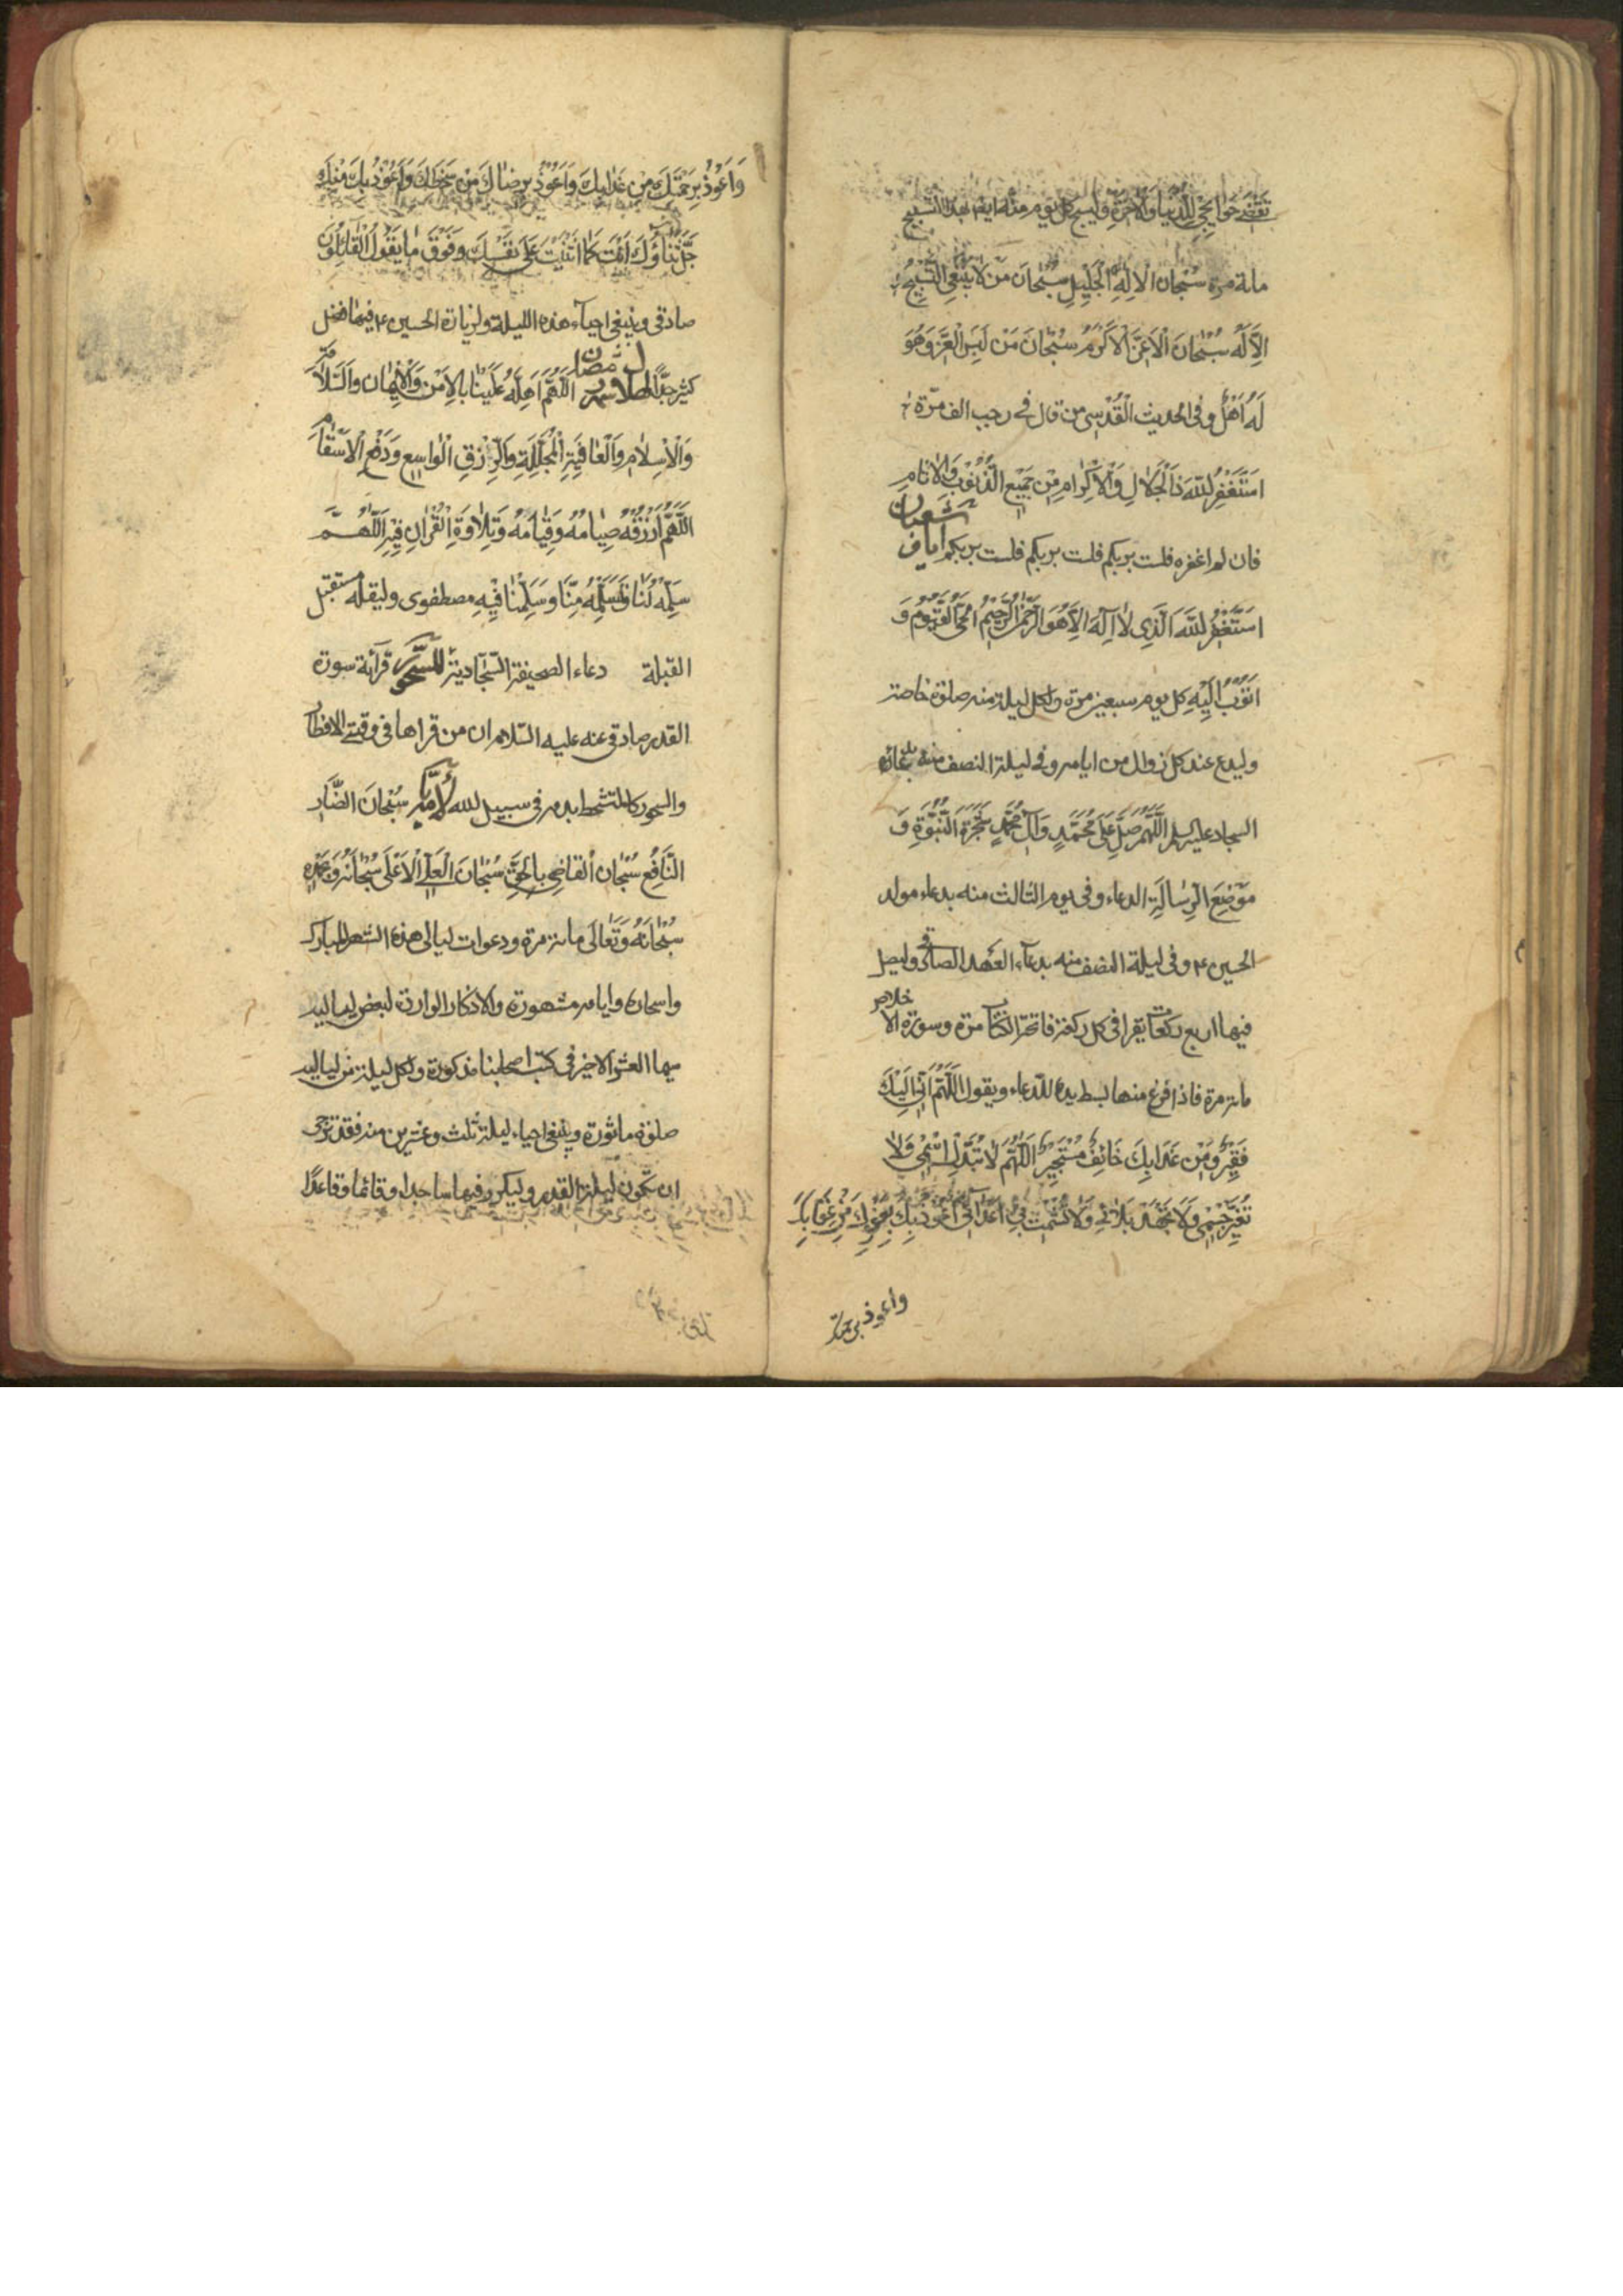 تقضي حوايجي للدنيا والاخرة وليسبح كل يوم منه ايضا بعد التسبيح
مائة مرة سُبْحان الْالِهِ الْجَلِيلِ سُبْحانَ مَنْ لَا يَنْبَغِي التَّسْبِيحُ
اِلَّا لَهُ سُبْحانَ الْاَعَزِّ الْاَكْرَمِ سُبْحانَ مَنْ لَبِسَ الْعِزَّ وَهُوَ
لَهُ اَهْلٌ وفى الحديث الْقُدْسِى من قال فى رجب الف مرّة
اَسْتَغْفِرُ اللّهَ ذَا الْجَلالِ وَالْاِكْرامِ مِنْ جَمِيعِ الذُّنُوبِ وَالْاثامِ
فان لم اغفره فلست بربكم فلست بربكم فلست بربكم ايام شعبان
اَسْتَغْفِرُ اللّهَ الَّذِى لَا اِلٰهَ اِلَّا هُوَ الرَّحْمٰنُ الرَّحِيمُ الْحَىُّ الْقَيُّومُ وَ
اَتُوبُ اِلَيْهِ كل يوم سبعين مرة ولكل ليلة منه صلوة خاصة
وليدع عند كل زوال من ايامه وفى ليلة النصف منه بدعاء
السجاد عليه السلم اللَّهُمَّ صَلِّ عَلَى مُحَمَّدٍ وَآلِ مُحَمَّدٍ شَجَرَةِ النُّبُوَّةِ وَ
مَوْضِعِ الرِّسالَةِ الدعاء وفى يوم الثالث منه بدعاء مولد
الحسين ع وفى ليلة النصف منه بدعاء العهد الصادقى وليصل
فيها اربع ركعات يقرا فى كل ركعة فاتحة الكتاب مرة وسورة الاخلاص
مائة مرة فاذا فرغ منها بسط يده للدعاء ويقول اللَّهُمَّ اِنِّى اِلَيْكَ
فَقِيرٌ وَمِنْ عَذابِكَ خَائِفٌ مُسْتَجِيرٌ اَللَّهُمَّ لَا تُبَدِّلْ اسْمِى وَلَا
تُغَيِّرْ جِسْمِى وَلَا تَجْهَدْ بَلَائِى وَلَا تُشْمِتْ بِى اَعْدَائِى اَعُوذُ بِكَ بِعَفْوِكَ مِنْ عِقَابِكَ
واعوذ برحمتك
وَاَعُوذُ بِرَحْمَتِكَ مِنْ عَذابِكَ وَاَعُوذُ بِرِضَاكَ مِنْ سَخَطِكَ وَاَعُوذُ بِكَ مِنْكَ
جَلَّ ثَنَاؤُكَ اَنْتَ كَمَا اَثْنَيْتَ عَلَى نَفْسِكَ وَفَوْقَ مَا يَقُولُ الْقَائِلُونَ
صادقى وينبغى احياء هذه الليلة ولزيارة الحسين ع فيها فضل
كثير جدًّا لهلال شهر رمضان اللَّهُمَّ اَهِلَّهُ عَلَيْنَا بِالْاَمْنِ وَالْاِيمَانِ وَالسَّلَامَةِ
وَالْاِسْلَامِ وَالْعَافِيَةِ الْمُجَلِّلَةِ وَالرِّزْقِ الْوَاسِعِ وَدَفْعِ الْاَسْقَامِ
اللَّهُمَّ ارْزُقْنَا صِيَامَهُ وَقِيَامَهُ وَتِلَاوَةَ الْقُرْانِ فِيهِ اللَّهُمَّ
سَلِّمْهُ لَنَا وَتَسَلَّمْهُ مِنَّا وَسَلِّمْنَا فِيهِ مصطفوى وليقله مستقبل
القبلة دعاء الصحيفة السّجّادية للسّحور قرائة سورة
القدر صادقى عنه عليه السّلام ان من قراها فى وقتى الافطار
والسحور كالمتشحط بدمه فى سبيل الله لايّامه سُبْحَانَ الضَّارِّ
النَّافِعِ سُبْحَانَ الْقَاضِى بِالْحَقِّ سُبْحَانَ الْعَلِىِّ الْاَعْلَى سُبْحَانَهُ وَبِحَمْدِهِ
سُبْحَانَهُ وَتَعَالَى مائة مرة ودعوات ليالى هذه الشهر المبارك
واسحاره وايامه مشهورة والاذكار الواردة لبعض لياليه
سيما العشر الاخير فى كتب اصحابنا مذكورة ولكل ليلة من لياليه
صلوة ماثورة وينبغى احياء ليلة ثلث وعشرين منه فقد ترجى
ان تكون ليلة القدر وليكرر فيها ساجدا وقائما وقاعدًا